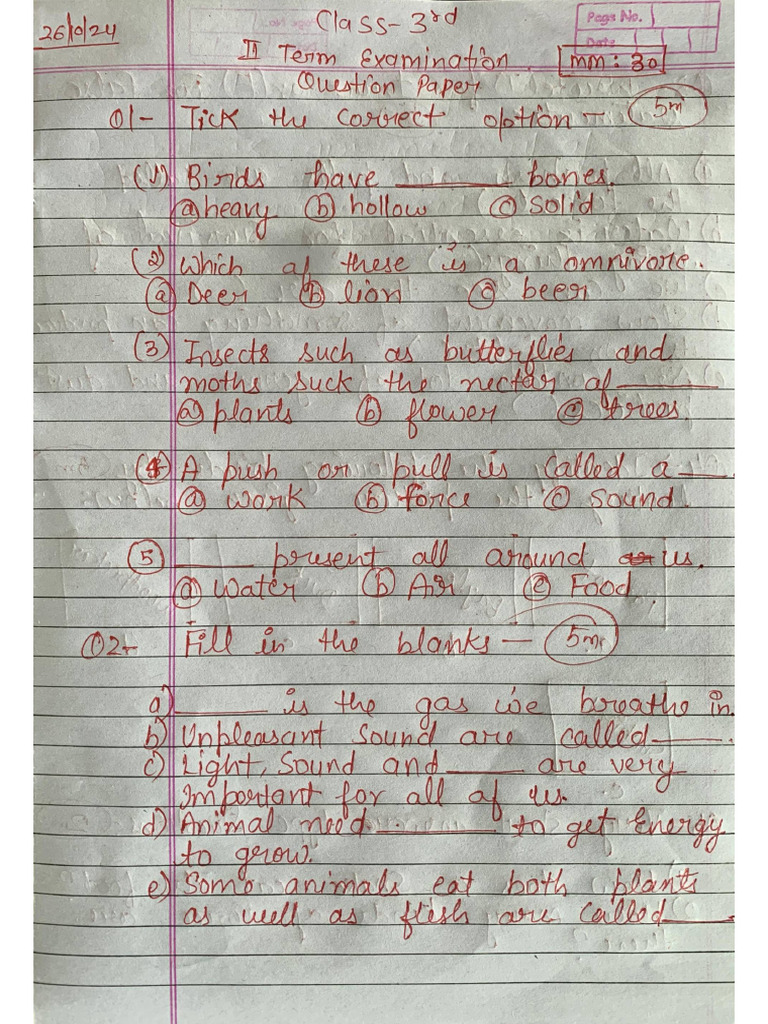 26/0/24
Class-3rd
Page No.
Date
II Term Examination.
MM: 30
Question Paper
Q1- Tick the correct option - 5m
(1) Birds have ______ bones.
(a) heavy (b) hollow (c) Solid
(2) Which of these is a omnivore.
(a) Deer (b) lion (c) beer
(3) Insects such as butterflies and
moths suck the nectar of ______
(a) plants (b) flower (c) trees.
(4) A push or pull is called a ____.
(a) work (b) force (c) sound.
(5) ______ present all around us.
(a) Water (b) Air (c) Food.
Q2- Fill in the blanks - 5m
a) ______ is the gas we breathe in.
b) Unpleasant sound are called ____.
c) Light, Sound and ____ are very
Important for all of us.
d) Animal need ______ to get Energy
to grow.
e) Some animals eat both plants
as well as flesh are called ____.